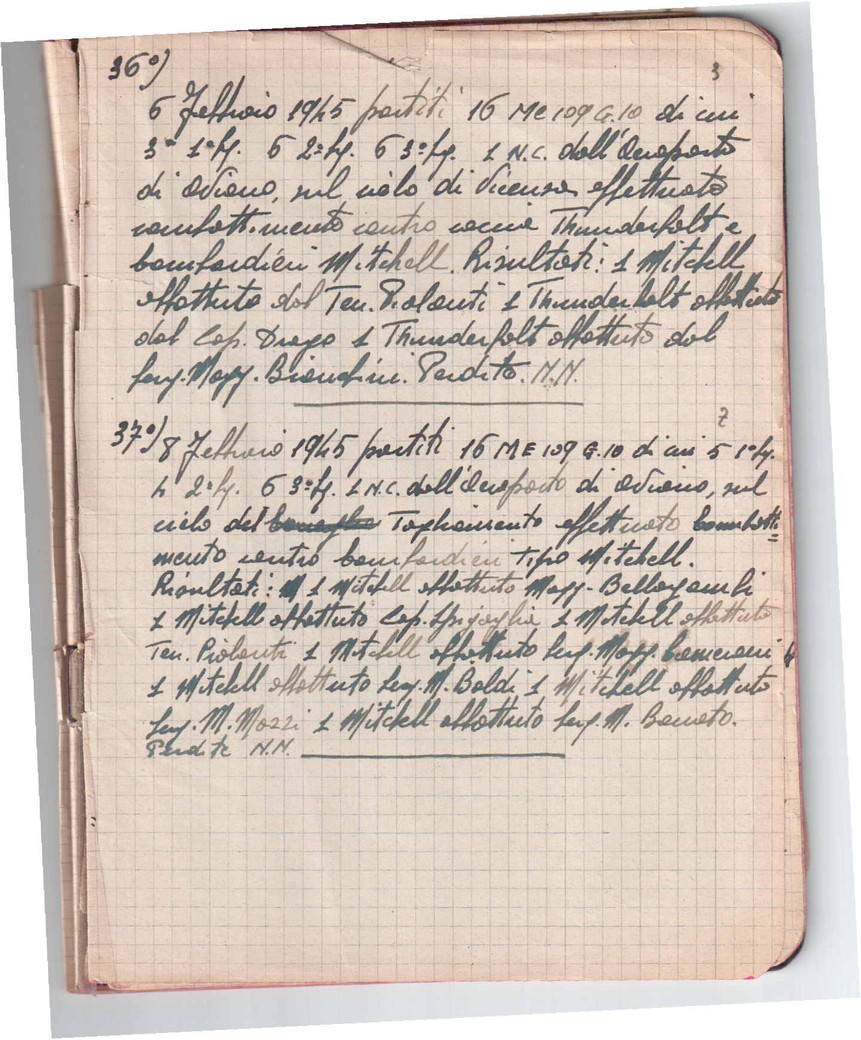 36°)
3
6 Febbraio 1945 partiti 16 Me 109 G.10 di cui
3° 1ªsq. 6 2ªsq. 6 3ªsq. 1 N.C. dall'Aeroporto
di Aviano, sul cielo di Vicenza effettuato
combattimento contro caccia Thunderbolt e
bombardieri Mitchell. Risultati: 1 Mitchell
abbattuto dal Ten. Piolanti 1 Thunderbolt abbattuto
dal Cap. Drago 1 Thunderbolt abbattuto dal
Serg. Magg. Bianchini. Perdite. N.N.
7
37°) 8 Febbraio 1945 partiti 16 ME 109 G.10 di cui 5 1ªsq.
4 2ªsq. 6 3ªsq. 1 N.C. dall'Aeroporto di Aviano, sul
cielo del Tagliamento effettuato combatti=
mento contro bombardieri Tipo Mitchell.
Risultati: 1 Mitchell abbattuto Magg. Bellagambi
1 Mitchell abbattuto Cap. Spigaglia 1 Mitchell abbattuto
Ten. Piolanti 1 Mitchell abbattuto Serg. Magg. Camerani
1 Mitchell abbattuto Serg. M. Baldi 1 Mitchell abbattuto
Serg. M. Mazzi 1 Mitchell abbattuto Serg. M. Benato.
Perdite N.N.